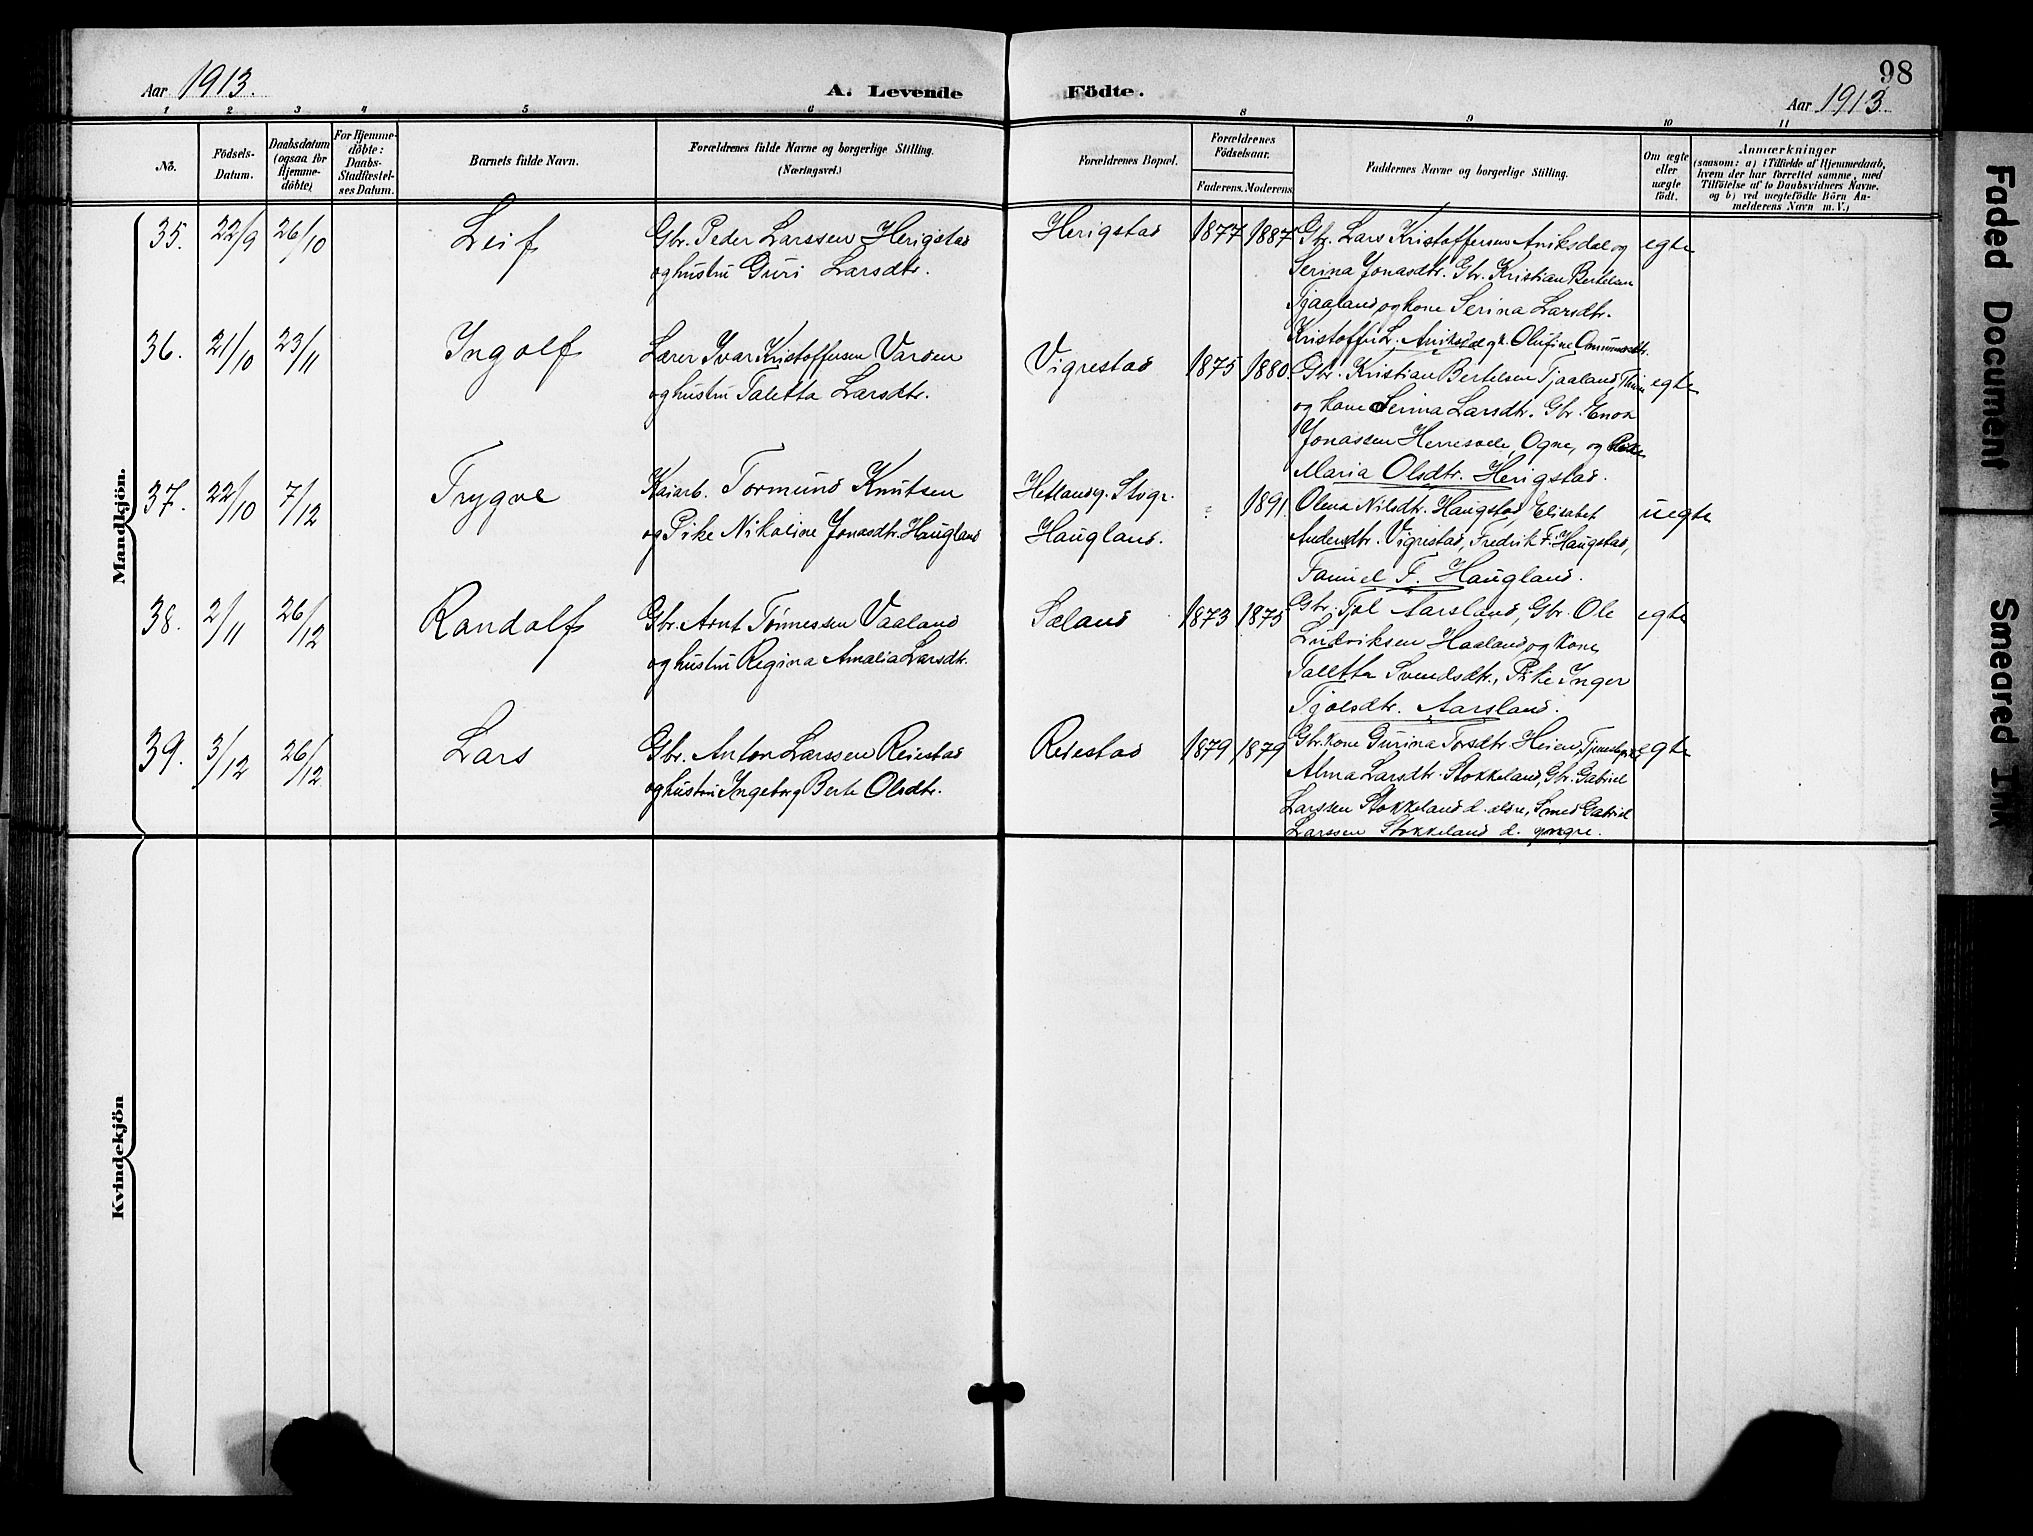 98
Aar 1913.
A. Levende Födte.
Aar 1913.
1 2 3 4 5 6 8 9 10 11
No.
Födsels-
Datum.
Daabsdatum
(ogsaa for
Hjemme-
döbte)
For Hjemme-
döbte:
Daabs-
Stadfæstel-
ses Datum.
Barnets fulde Navn.
Forældrenes fulde Navne og borgerlige Stilling.
(Næringsvei.)
Forældrenes Bopæl.
Forældrenes
Födselsaar.
Faderens. Moderens.
Faddernes Navne og borgerlige Stilling.
Om ægte
eller
uægte
födt.
Anmærkninger
(saasom: a) i Tilfælde af Hjemmedaab,
hvem der har forrettet samme, med
Tilföielse af to Daabsvidners Navne.
og b) ved uægtefödte Börn An-
melderens Navn m. V.)
Mandkjön.
35. 22/9 26/10 Leif
Gbr. Peder Larssen Herigstad
og hustru Guri Larsdtr.
Herigstad 1877 1887
Gbr. Lars Kristoffersen Aniksdal og
Serina Jonasdtr. Gbr. Kristian Bertelsen
Tjaaland og kone Serina Larsdtr.
Kristoffer L. Aniksdal og Olufine
egte
36. 21/10 23/11 Ingolf
Lærer Ivar Kristoffersen Varden
og hustru Taletta Larsdtr.
Vigrestad 1875 1880.
Gbr. Kristian Bertelsen Tjaaland, Thime
og kone Serina Larsdtr. Gbr. Enok
Jonassen Herresvele, Ogne, og Pike
Maria Olsdtr. Herigstad.
egte
37. 22/10 7/12 Trygve
Kaiarb. Tormund Knutsen
og Pike Nikoline Jonasdtr. Haugland
Hetlandg. Stvgr.
Haugland.
1891.
Olena Nilsdtr. Haugstad, Elisabet
Andersdtr. Vigrestad, Fredrik F. Haugstad,
F. Haugland.
uegte
38. 2/11 26/12 Randolf
Gbr. Arnt Tönnessen Vaaland
og hustru Regina Amalia Larsdtr.
Sæland 1873 1875
Gbr. Tjøl Aarsland, Gbr. Ole
Ludviksen Haaland og kone
Taletta Svendsdtr., Pike Inger
Tjølsdtr. Aarsland.
egte
39. 3/12 26/12 Lars
Gbr. Anton Larssen Reiestad
og hustru Ingeborg Berte Olsdtr.
Reiestad 1879 1879
Gbr.kone Gurina Torsdtr. Heien, Tjenestepike
Alma Larsdtr. Stokkeland, Gbr. Gabriel
Larssen Stokkeland d. eldre, Smed Gabriel
Larssen Stokkeland d. yngre.
egte
Kvindekjön
Faded Document
Smeared Ink